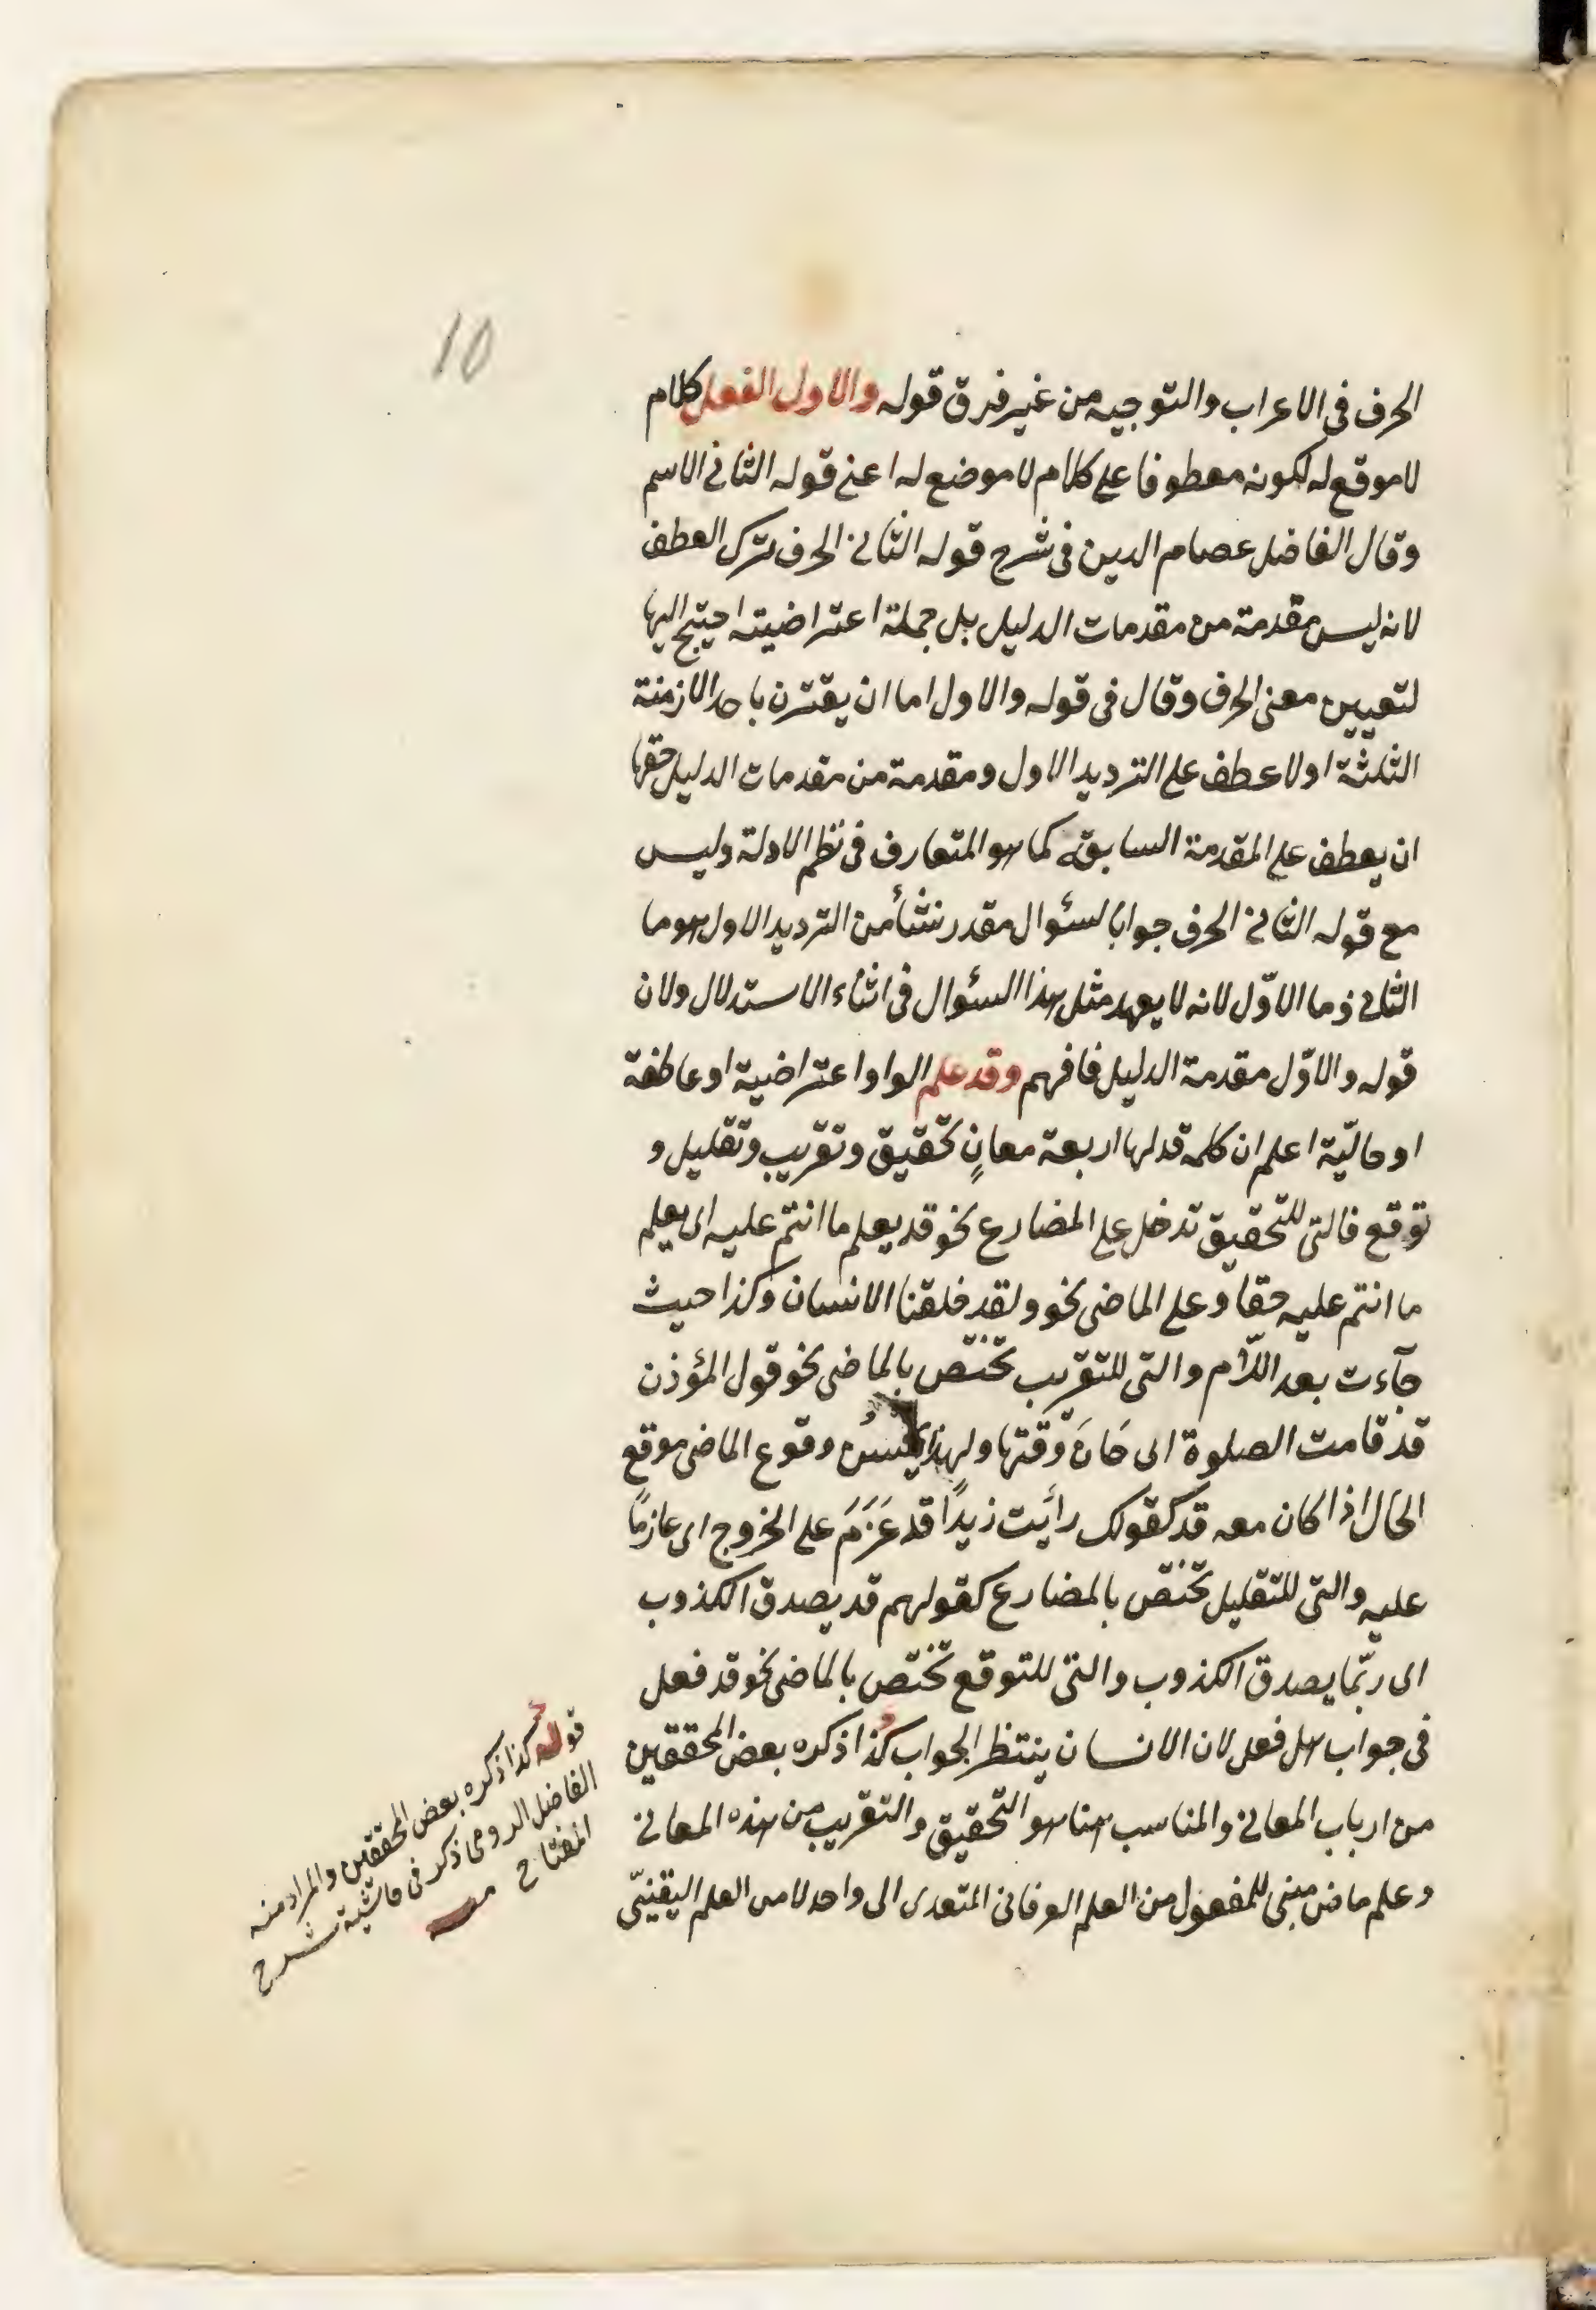 10
الحرف فى الاعراب والتوجيه من غير فرق قوله والاول الفعل كلام
لا موقع له لكونه معطوفا على كلام لا موضع له اعنى قوله الثانى الاسم
وقال الفاضل عصام الدين فى شرح قوله الثانى الحرف ترك العطف
لانه ليس مقدمة من مقدمات الدليل بل جملة اعتراضية احتيج اليها
لتعيين معنى الحرف وقال فى قوله والاول اما ان يقترن باحد الازمنة
الثلثة اولا عطف على الترديد الاول ومقدمة من مقدمات الدليل حقها
ان يعطف على المقدمة السابقة كما هو المتعارف فى نظم الادلة وليس
مع قوله الثانى الحرف جوابا لسئوال مقدر نشأ من الترديد الاول هو ما
الثانى وما الاوّل لانه لا يعهد مثل هذا السئوال فى اثناء الاستدلال ولان
قوله والاوّل مقدمة الدليل فافهم وقد علم الواو اعتراضية او عاطفة
او حاليّة اعلم ان كلمة قد لها اربعة معانٍ تحقيق وتقريب وتقليل و
توقع فالتى للتحقيق تدخل على المضارع نحو قد يعلم ما انتم عليه اى يعلم
ما انتم عليه حقا وعلى الماضى نحو ولقد خلقنا الانسان وكذا حيث
جآءت بعد اللّام والتى للتقريب تختص بالماضى نحو قول المؤذن
قد قامت الصلوة اى حَانَ وقتها ولهذا يحسُن وقوع الماضى موقع
الحال اذا كان معه قد كقولك رأيت زيدًا قد عَزَمَ على الخروج اى عازمًا
عليه والتى للتقليل تختص بالمضارع كقولهم قد يصدق الكذوب
اى ربّما يصدق الكذوب والتى للتوقع تختص بالماضى نحو قد فعل
فى جواب هل فعل لان الانسان ينتظر الجواب كذا ذكره بعض المحققين
من ارباب المعانى والمناسب هنا هو التحقيق والتقريب من هذه المعانى
وعلم ماض مبنى للمفعول من العلم العرفانى المتعدى الى واحد لا من العلم اليقينىّ
قوله كذا ذكره بعض المحققين والمراد منه
الفاضل الرومى ذكر فى حاشية شرح
المفتاح منه